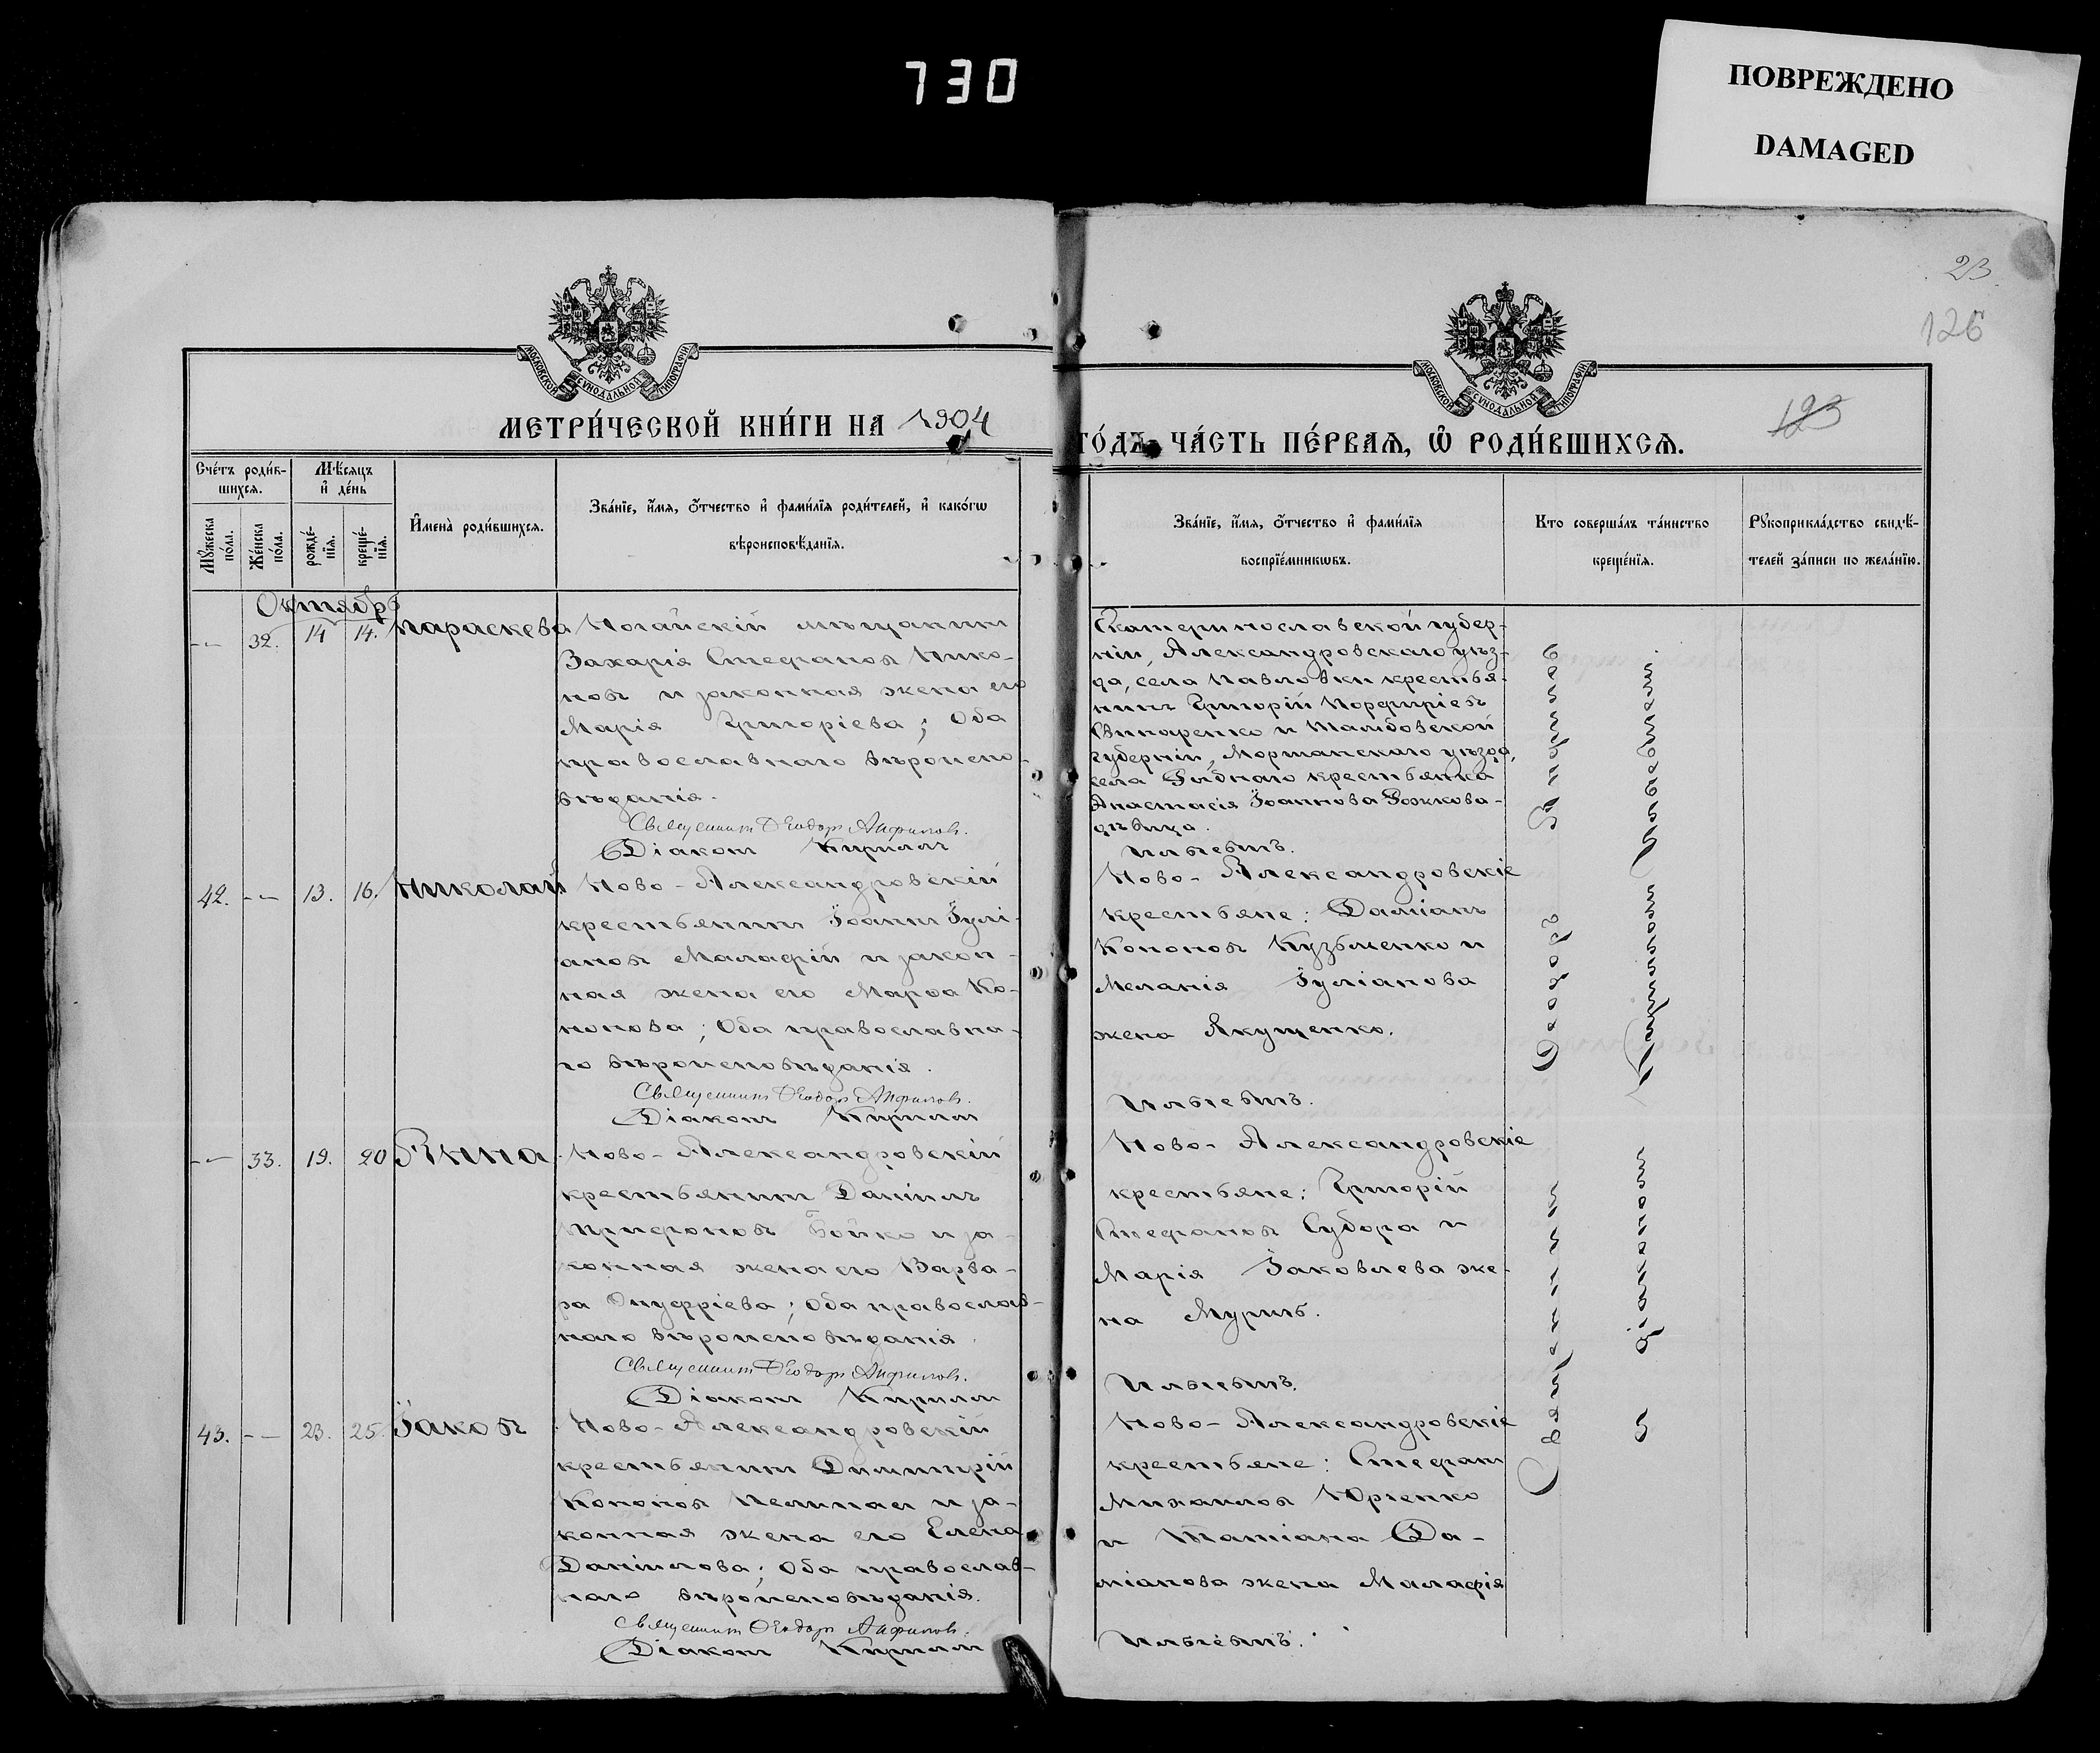 730
ПОВРЕЖДЕНО
DAMAGED
23
126
123
МОСКОВСКОЙ СѴНОДАЛЬНОЙ ТИПОГРАФІИ
МОСКОВСКОЙ СѴНОДАЛЬНОЙ ТИПОГРАФІИ
МЕТРИ́ЧЕСКОЙ КНИ́ГИ НА 1904
ГО́ДЪ ЧА́СТЬ ПЕ́РВАѦ, Ѡ҆ РОДИ́ВШИХСѦ.
Счє́тъ роди́вшихсѧ.
Мѣ́сѧцъ и҆ дє́нь
Мꙋ́жєска по́ла.
Жє́нска по́ла.
рождє́нїѧ.
крєщє́нїѧ.
И҆мєна̀ роди́вшихсѧ.
Зва́нїє, и҆́мѧ, ѻ҆́тчєство и҆ фами́лїѧ роди́тєлєй, и҆ како́гѡ
вѣроисповѣ́данїѧ.
Зва́нїє, и҆́мѧ, ѻ҆́тчєство и҆ фами́лїѧ
воспрїє́мникѡвъ.
Кто совєрша́лъ та́инство
крєщє́нїѧ.
Рꙋкоприкла́дство свидѣ́-
тєлєй за́писи по жєла́нїю.
Октябрь
-- 32. 14 14. Параскева
Ногайскій мѣщанинъ
Захарія Стефановъ Нико-
новъ и законная жена его
Марія Григоріева; Оба
православнаго вѣроиспо-
вѣданія.
Священникъ Ѳеодоръ Анфиловъ.
Діаконъ Кириллъ
Екатеринославской губер-
ніи, Александровскаго уѣз-
да, села Павловки крестья-
нинъ Григорій Порфиріевъ
Свинаренко и Тамбовской
губерніи, Моршанскаго уѣзда,
села Рыбнаго крестьянка
Анастасія Іоаннова Рожкова-
дѣвица.
Ильевитъ.
42. -- 13. 16. Николай
Ново-Александровскій
крестьянинъ Іоаннъ Іулі-
ановъ Малафій и закон-
ная жена его Марѳа Ко-
нонова; Оба православна-
го вѣроисповѣданія.
Священникъ Ѳеодоръ Анфиловъ.
Діаконъ Кириллъ
Ново-Александровскіе
крестьяне: Даміанъ
Кононовъ Кузьменко и
Меланія Іуліанова
жена Якущенко.
Ильевитъ.
-- 33. 19. 20 Анна
Ново-Александровскій
крестьянинъ Даніилъ
Трифоновъ Бойко и за-
конная жена его Варва-
ра Онуфріева; Оба православ-
наго вѣроисповѣданія.
Священникъ Ѳеодоръ Анфиловъ.
Діаконъ Кириллъ
Ново-Александровскіе
крестьяне: Григорій
Стефановъ Субора и
Марія Іаковлева же-
на Муринъ.
Ильевитъ.
43. -- 23. 25. Іаковъ
Ново-Александровскій
крестьянинъ Димитрій
Кононовъ и за-
конная жена его Елена
Даніилова; Оба православ-
наго вѣроисповѣданія.
Священникъ Ѳеодоръ Анфиловъ.
Діаконъ Кириллъ
Ново-Александровскіе
крестьяне: Стефанъ
Михаиловъ Юрченко
и Татіана Да-
міанова жена Малафія
Ильевитъ.
Священникъ Ѳеодоръ Анфиловъ
и діакономъ Кирилломъ